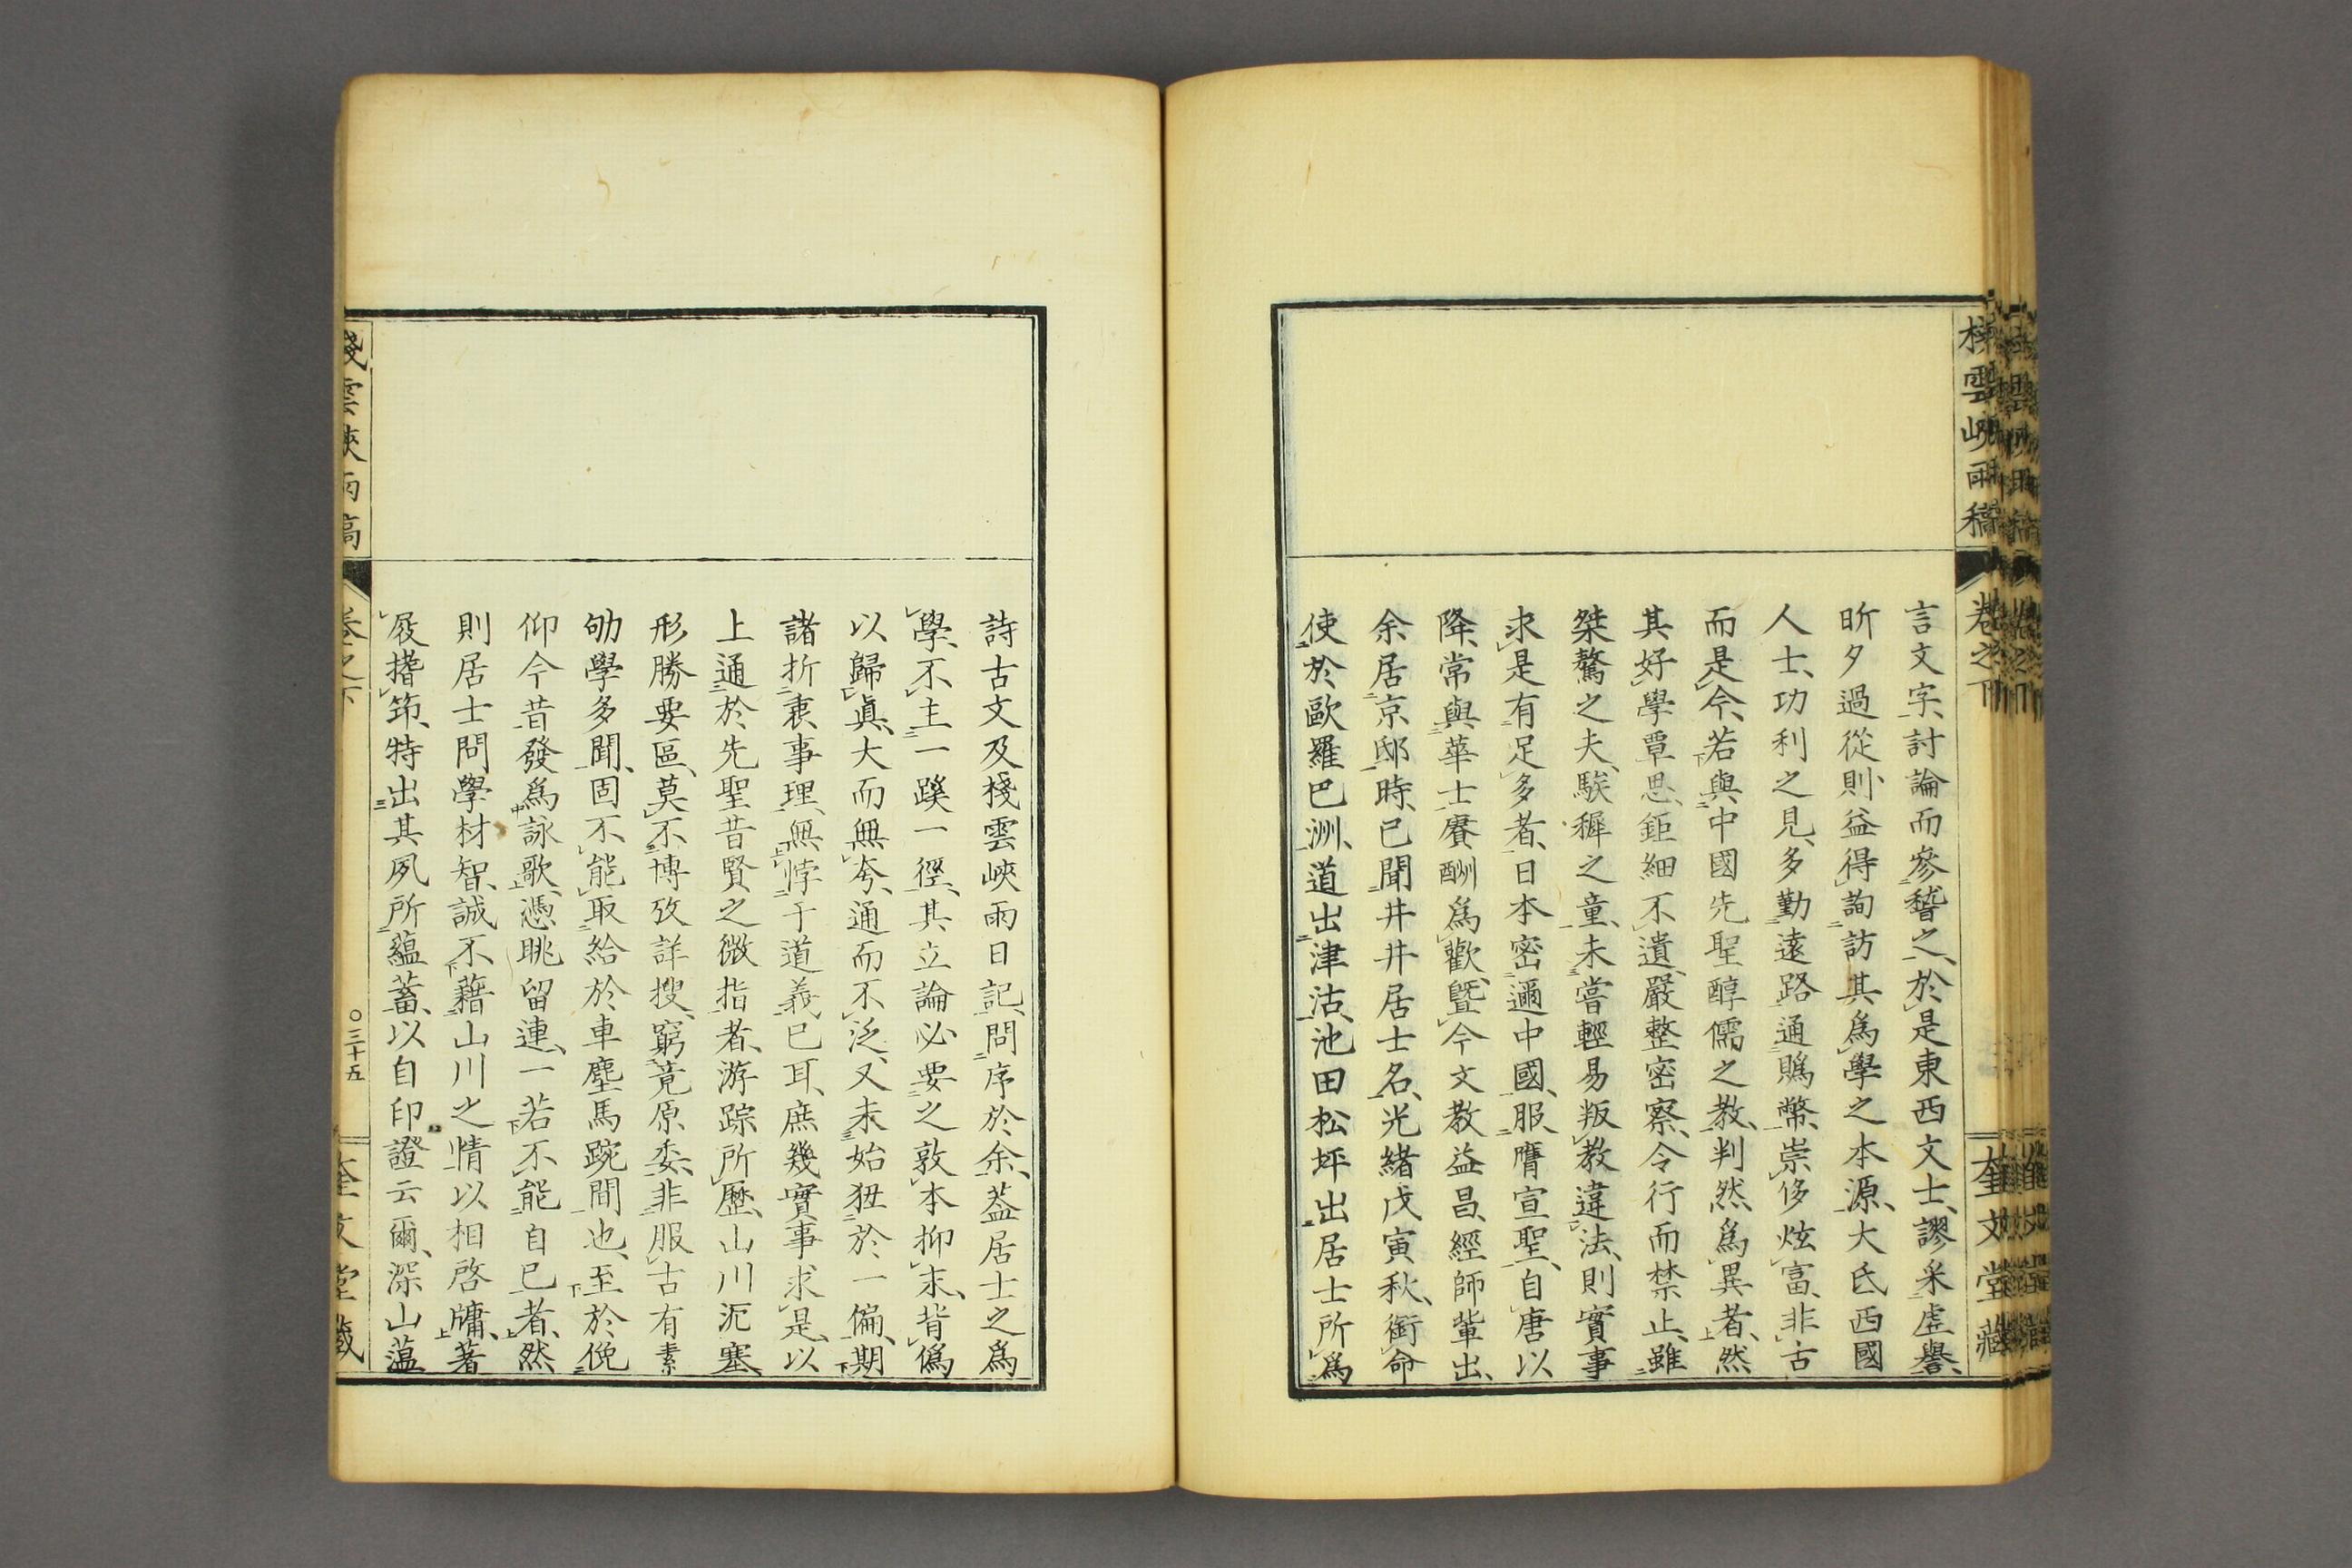 棧雲峽雨稿
卷之下
奎文堂藏
言文字、討論而參稽之、於是東西文士、謬采虛譽、
昕夕過從、則益得詢訪其爲學之本源、大氐西國
人士、功利之見、多勤遠路通賜幣、崇侈炫富、非古
而是今、若與中國先聖醇儒之教、判然爲異者、然
其好學覃思、鉅細不遺、嚴整密察、令行而禁止、雖
桀驁之夫、騃穉之童、未嘗輕易叛教違法、則實事
求是、有足多者、日本密邇中國、服膺宣聖、自唐以
降、常與華士賡酬爲歡、曁今文教益昌、經師輩出、
余居京邸時、已聞井井居士名、光緒戊寅秋、銜命
使於歐羅巴洲、道出津沽、池田松坪出居士所爲
詩古文及棧雲峽雨日記、問序於余、蓋居士之爲
學、不主一蹊一徑、其立論必要之敦本抑末、背僞
以歸眞、大而無夸、通而不泛、又未始狃於一偏、期
諸折衷事理、無悖于道義已耳、庶幾實事求是、以
上通於先聖昔賢之微指者、游踪所歷、山川阨塞、
形勝要區、莫不博攷詳搜、窮竟原委、非服古有素
劬學多聞、固不能取給於車塵馬踠間也、至於俛
仰今昔發爲詠歌、憑眺留連、一若不能自已者、然
則居士問學材智、誠不藉山川之情以相啓牖、著
屐搘筇、特出其夙所蘊蓄、以自印證云爾、深山薀
棧雲峽雨稿
卷之下
〇三十五
奎文堂藏